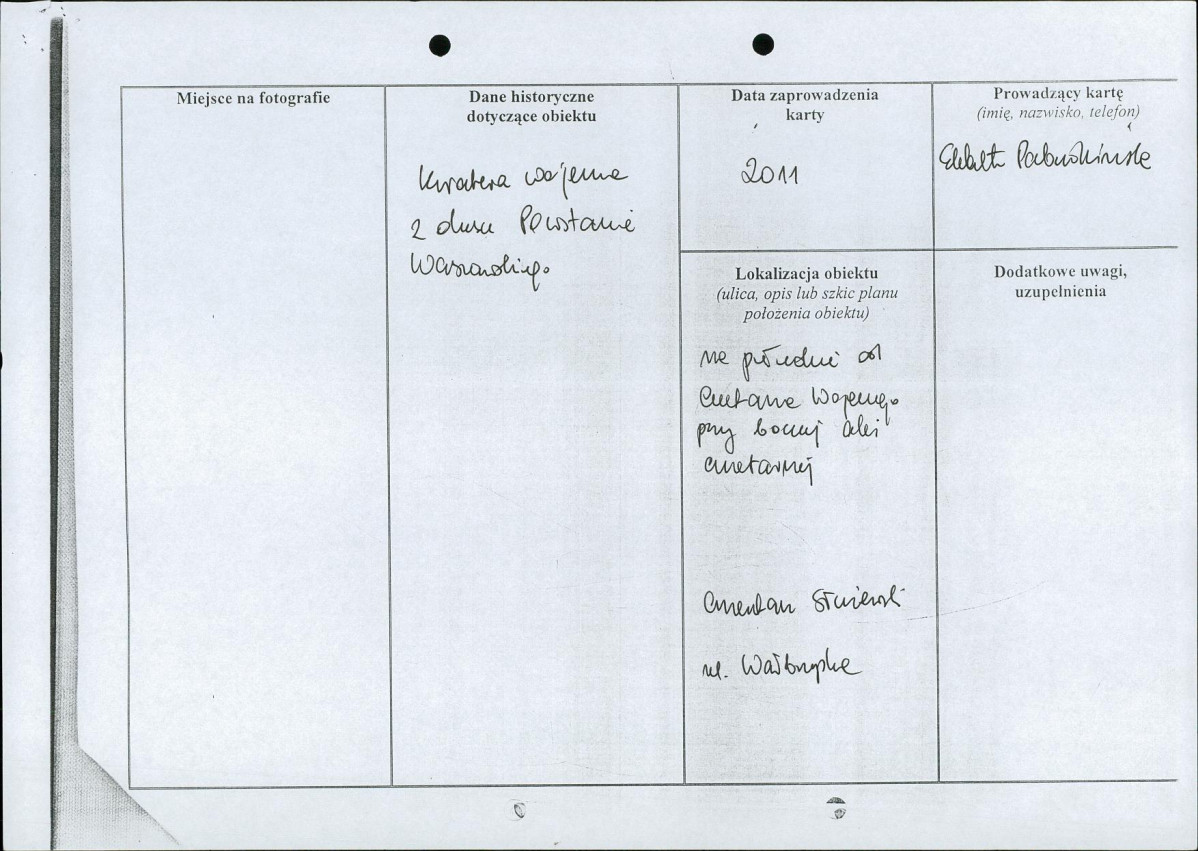 Miejsce na fotografie
Dane historyczne
dotyczące obiektu
Kwatera wojenna
z czasu Powstanie
Warszawskiego
Data zaprowadzenia
karty
2011
Prowadzący kartę
(imię, nazwisko, telefon)
Lokalizacja obiektu
(ulica, opis lub szkic planu
położenia obiektu)
na południe od
Cmentarza Wojennego
przy bocznej alei
cmentarnej
Cmentarz Służewski
ul. Wałbrzyska
Dodatkowe uwagi,
uzupełnienia